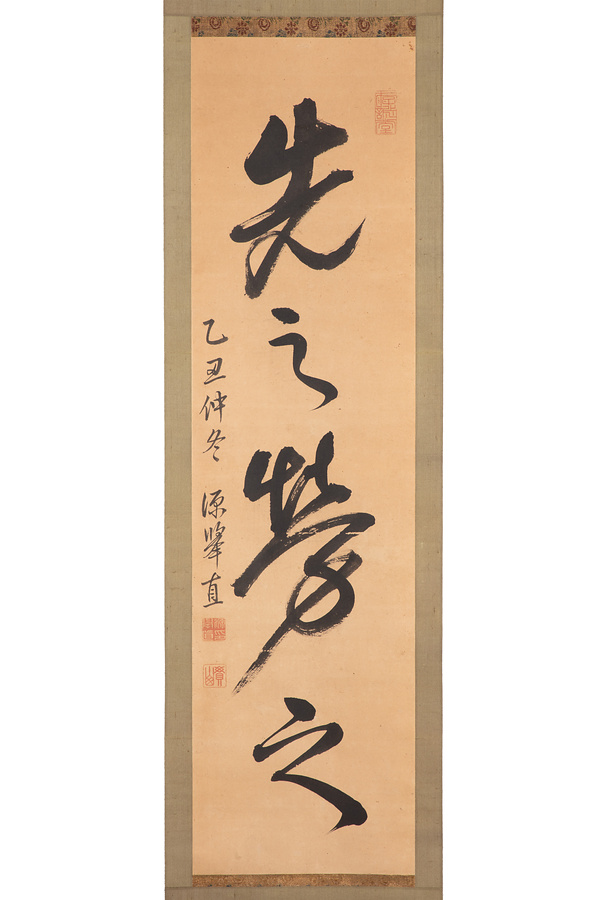 先之勞之
乙丑仲冬 源暉直